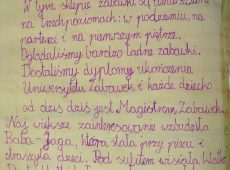 W tym sklepie zabawki są
na trzech poziomach: w podziemiu, na
parterze i na pierwszym piętrze.
Oglądaliśmy bardzo ładne zabawki.
Dostaliśmy dyplomy ukończenia
Uniwersytetu Zabawek i każde dziecko
od dziś jest Magistrem Zabawek.
Największe zainteresowanie wzbudziła
Baba-Jaga, która stała przy piecu i
straszyła dzieci. Pod sufitem wisiała